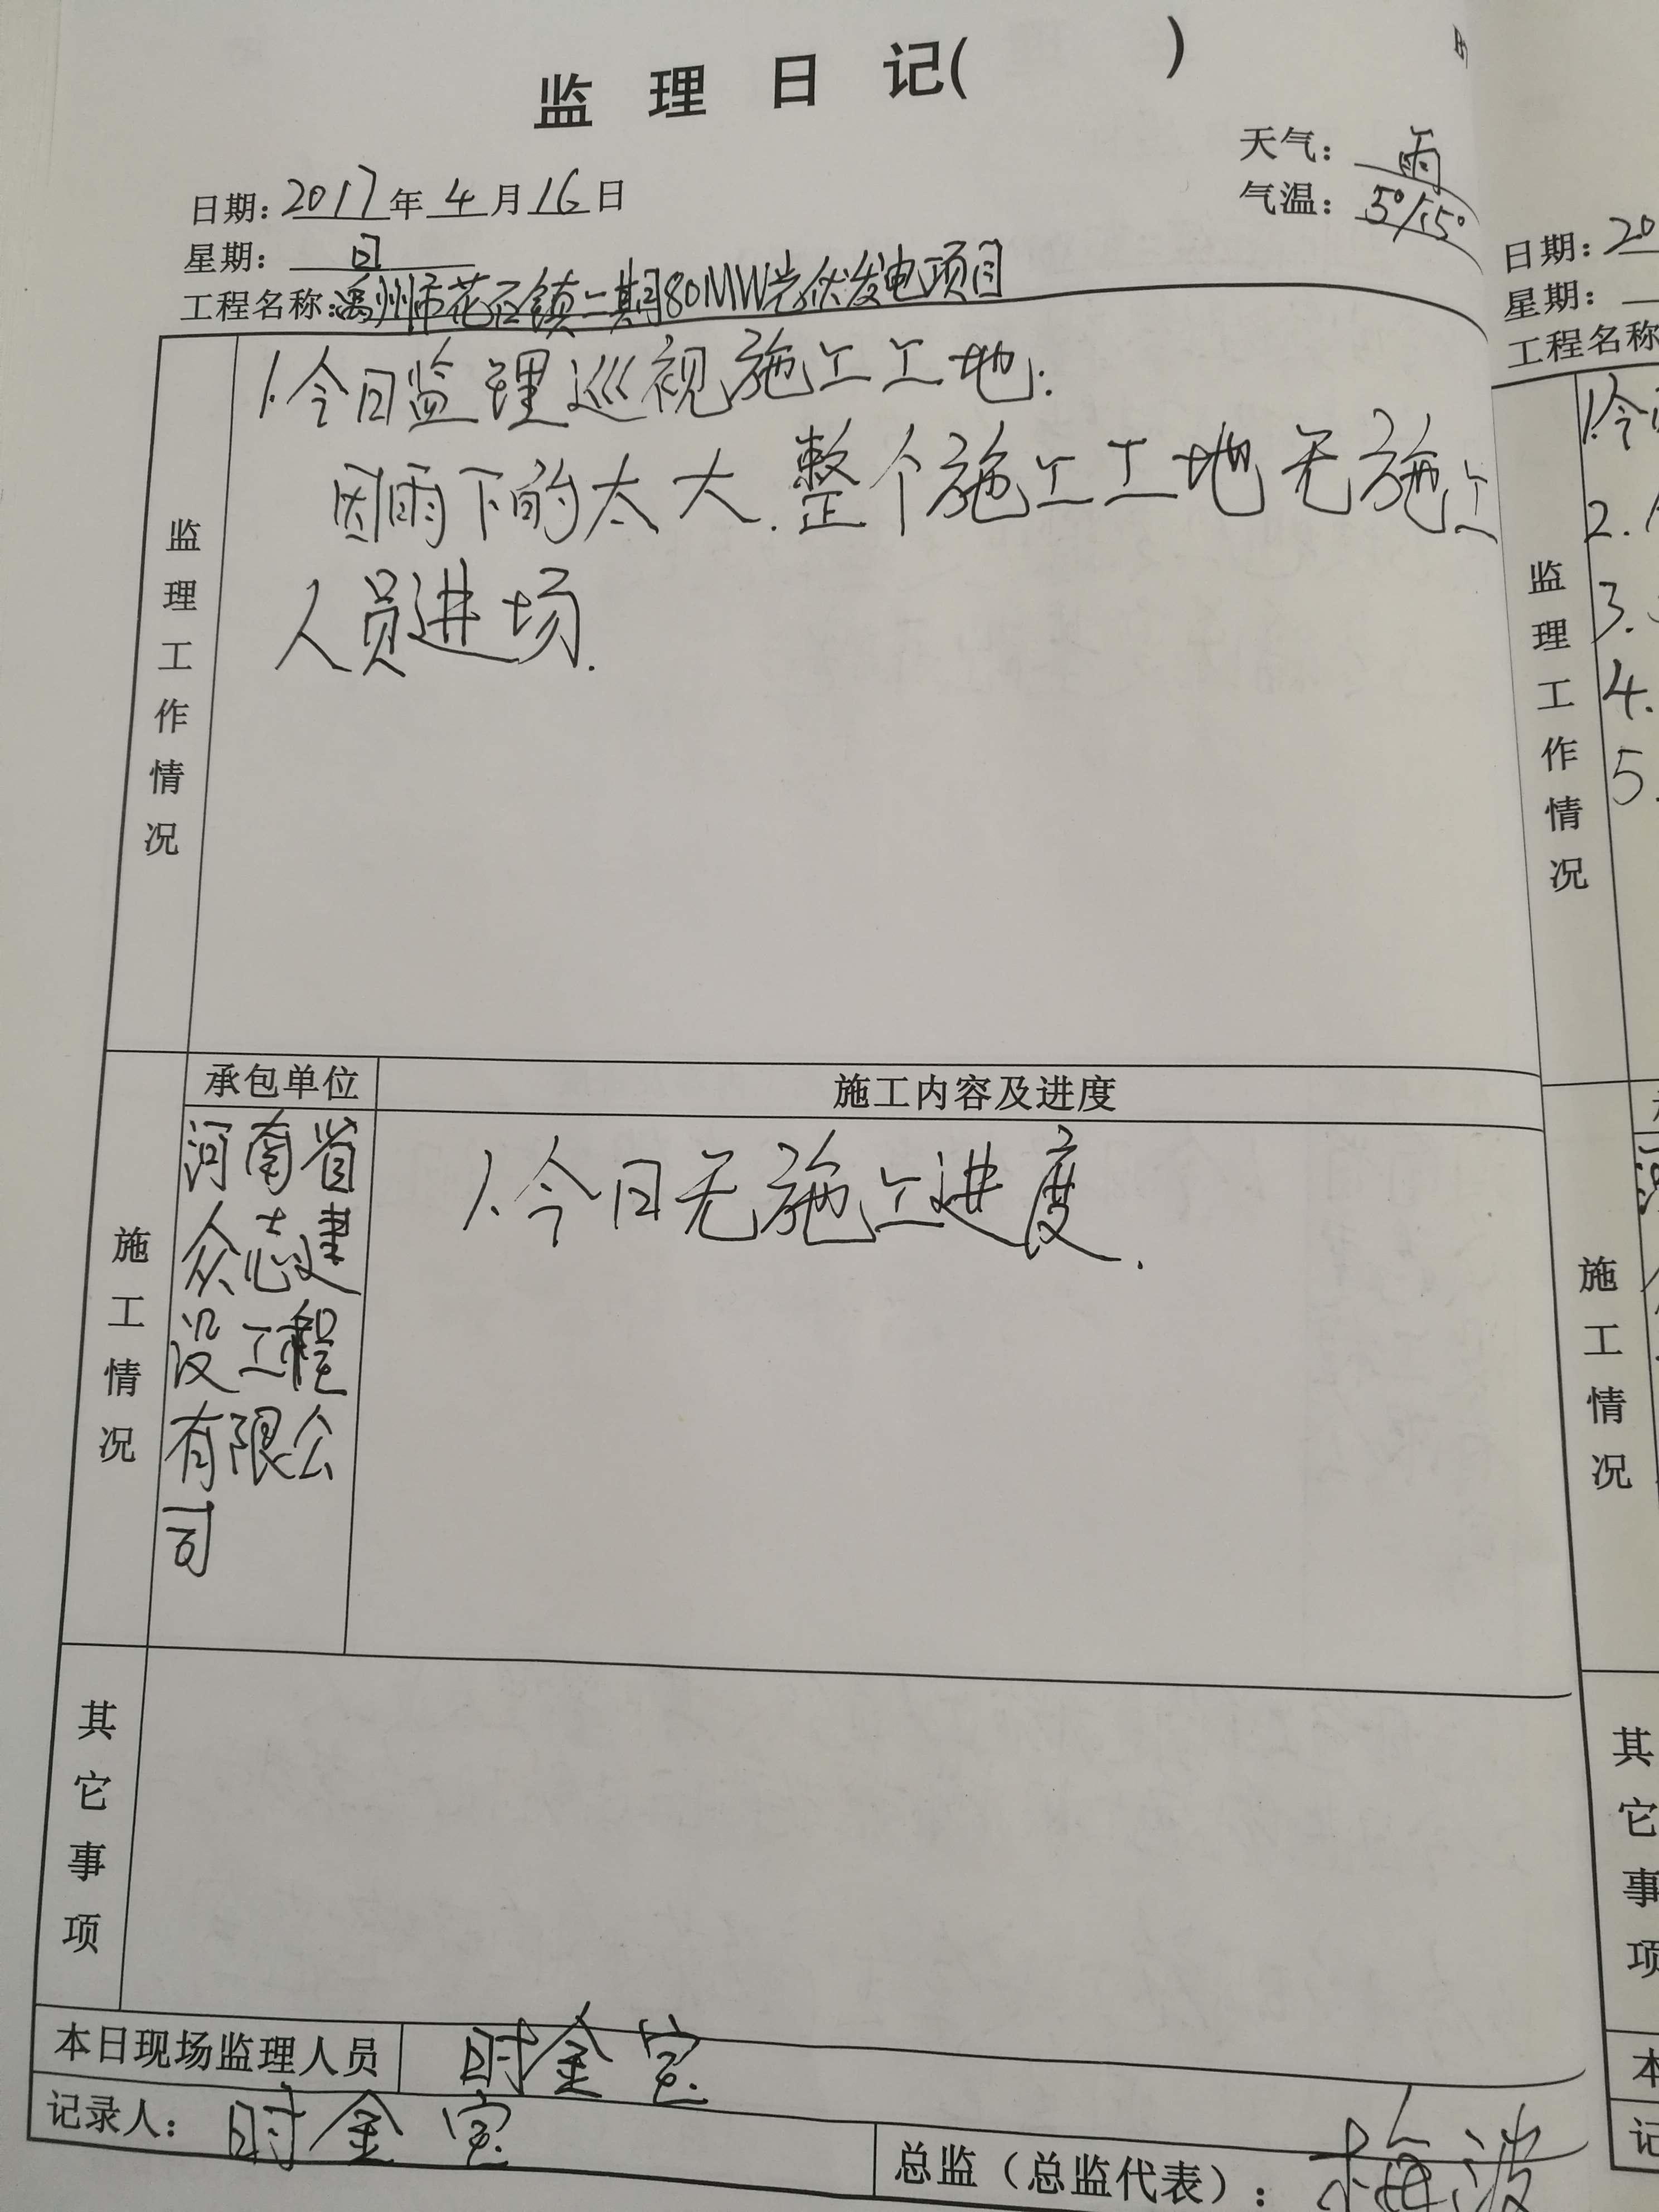 监 理 日 记( )
天气: 雨
日期: 2017 年 4 月 16 日
气温: 5°/15°
星期: 日
工程名称: 禹州市花石镇二期80MW光伏发电项目
监理工作情况
1.今日监理巡视施工工地:
因雨下的太大.整个施工工地无施工
人员进场.
施工情况
承包单位
施工内容及进度
河南省
众志建
设工程
有限公
司
1.今日无施工进度.
其它事项
本日现场监理人员
时金宝
记录人: 时金宝
总监(总监代表): 梅波
日期: 20
星期:
工程名称
监理工作情况
1.今
2.
3.
4.
5.
施工情况
其它事项
本
记